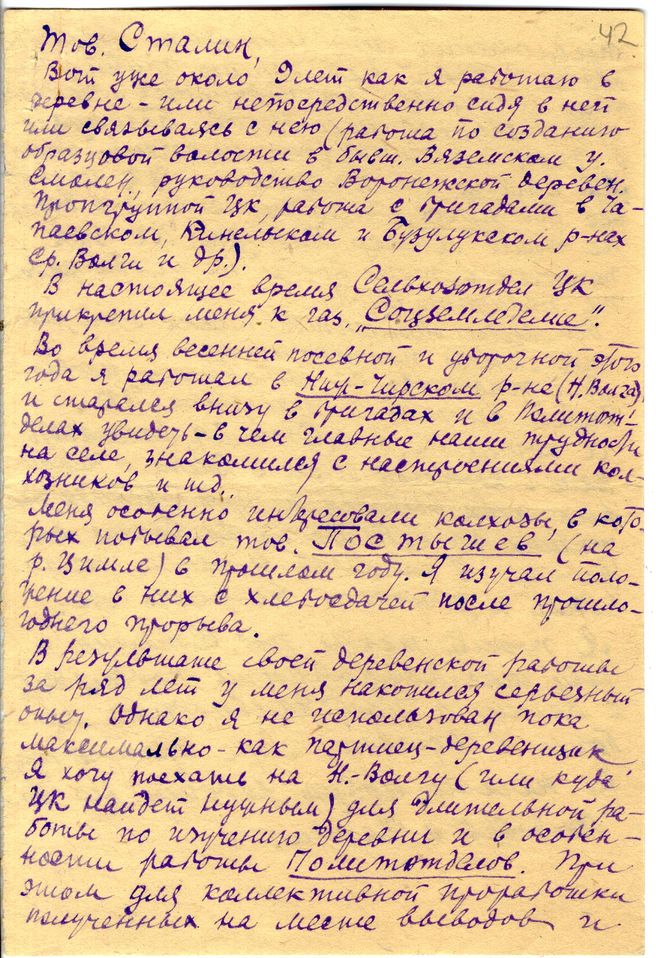 42
Тов. Сталин,
Вот уже около 9 лет как я работаю в
деревне - или непосредственно сидя в ней
или связываясь с нею (работа по созданию
образцовой волости в бывш. Вяземском у.
Смолен., руководство Воронежской деревен.
Пропгруппой ЦК, работа с бригадами в Ча-
паевском, Кинельском и Бузулукском р-нах
Ср. Волги и др.).
В настоящее время Сельхозотдел ЦК
прикрепил меня к газ. „Соцземледелие".
Во время весенней посевной и уборочной этого
года я работал в Ниж-Чирском р-не (Н. Волга)
и старался внизу в бригадах и в Политот-
делах увидеть - в чем главные наши трудности
на селе, знакомился с настроениями кол-
хозников и т.д.
Меня особенно интересовали колхозы, в кото-
рых побывал тов. Постышев (на
р. Цимле) в прошлом году. Я изучал поло-
жение в них с хлебосдачей после прошло-
годнего прорыва.
В результате своей деревенской работы
за ряд лет у меня накопился серьезный
опыт. Однако я не использован пока
максимально - как партиец-деревенщик.
Я хочу поехать на Н.-Волгу (или куда
ЦК найдет нужным) для длительной ра-
боты по изучению деревни и в особен-
ности работы Политотделов. При
этом для коллективной проработки
полученных на месте выводов и